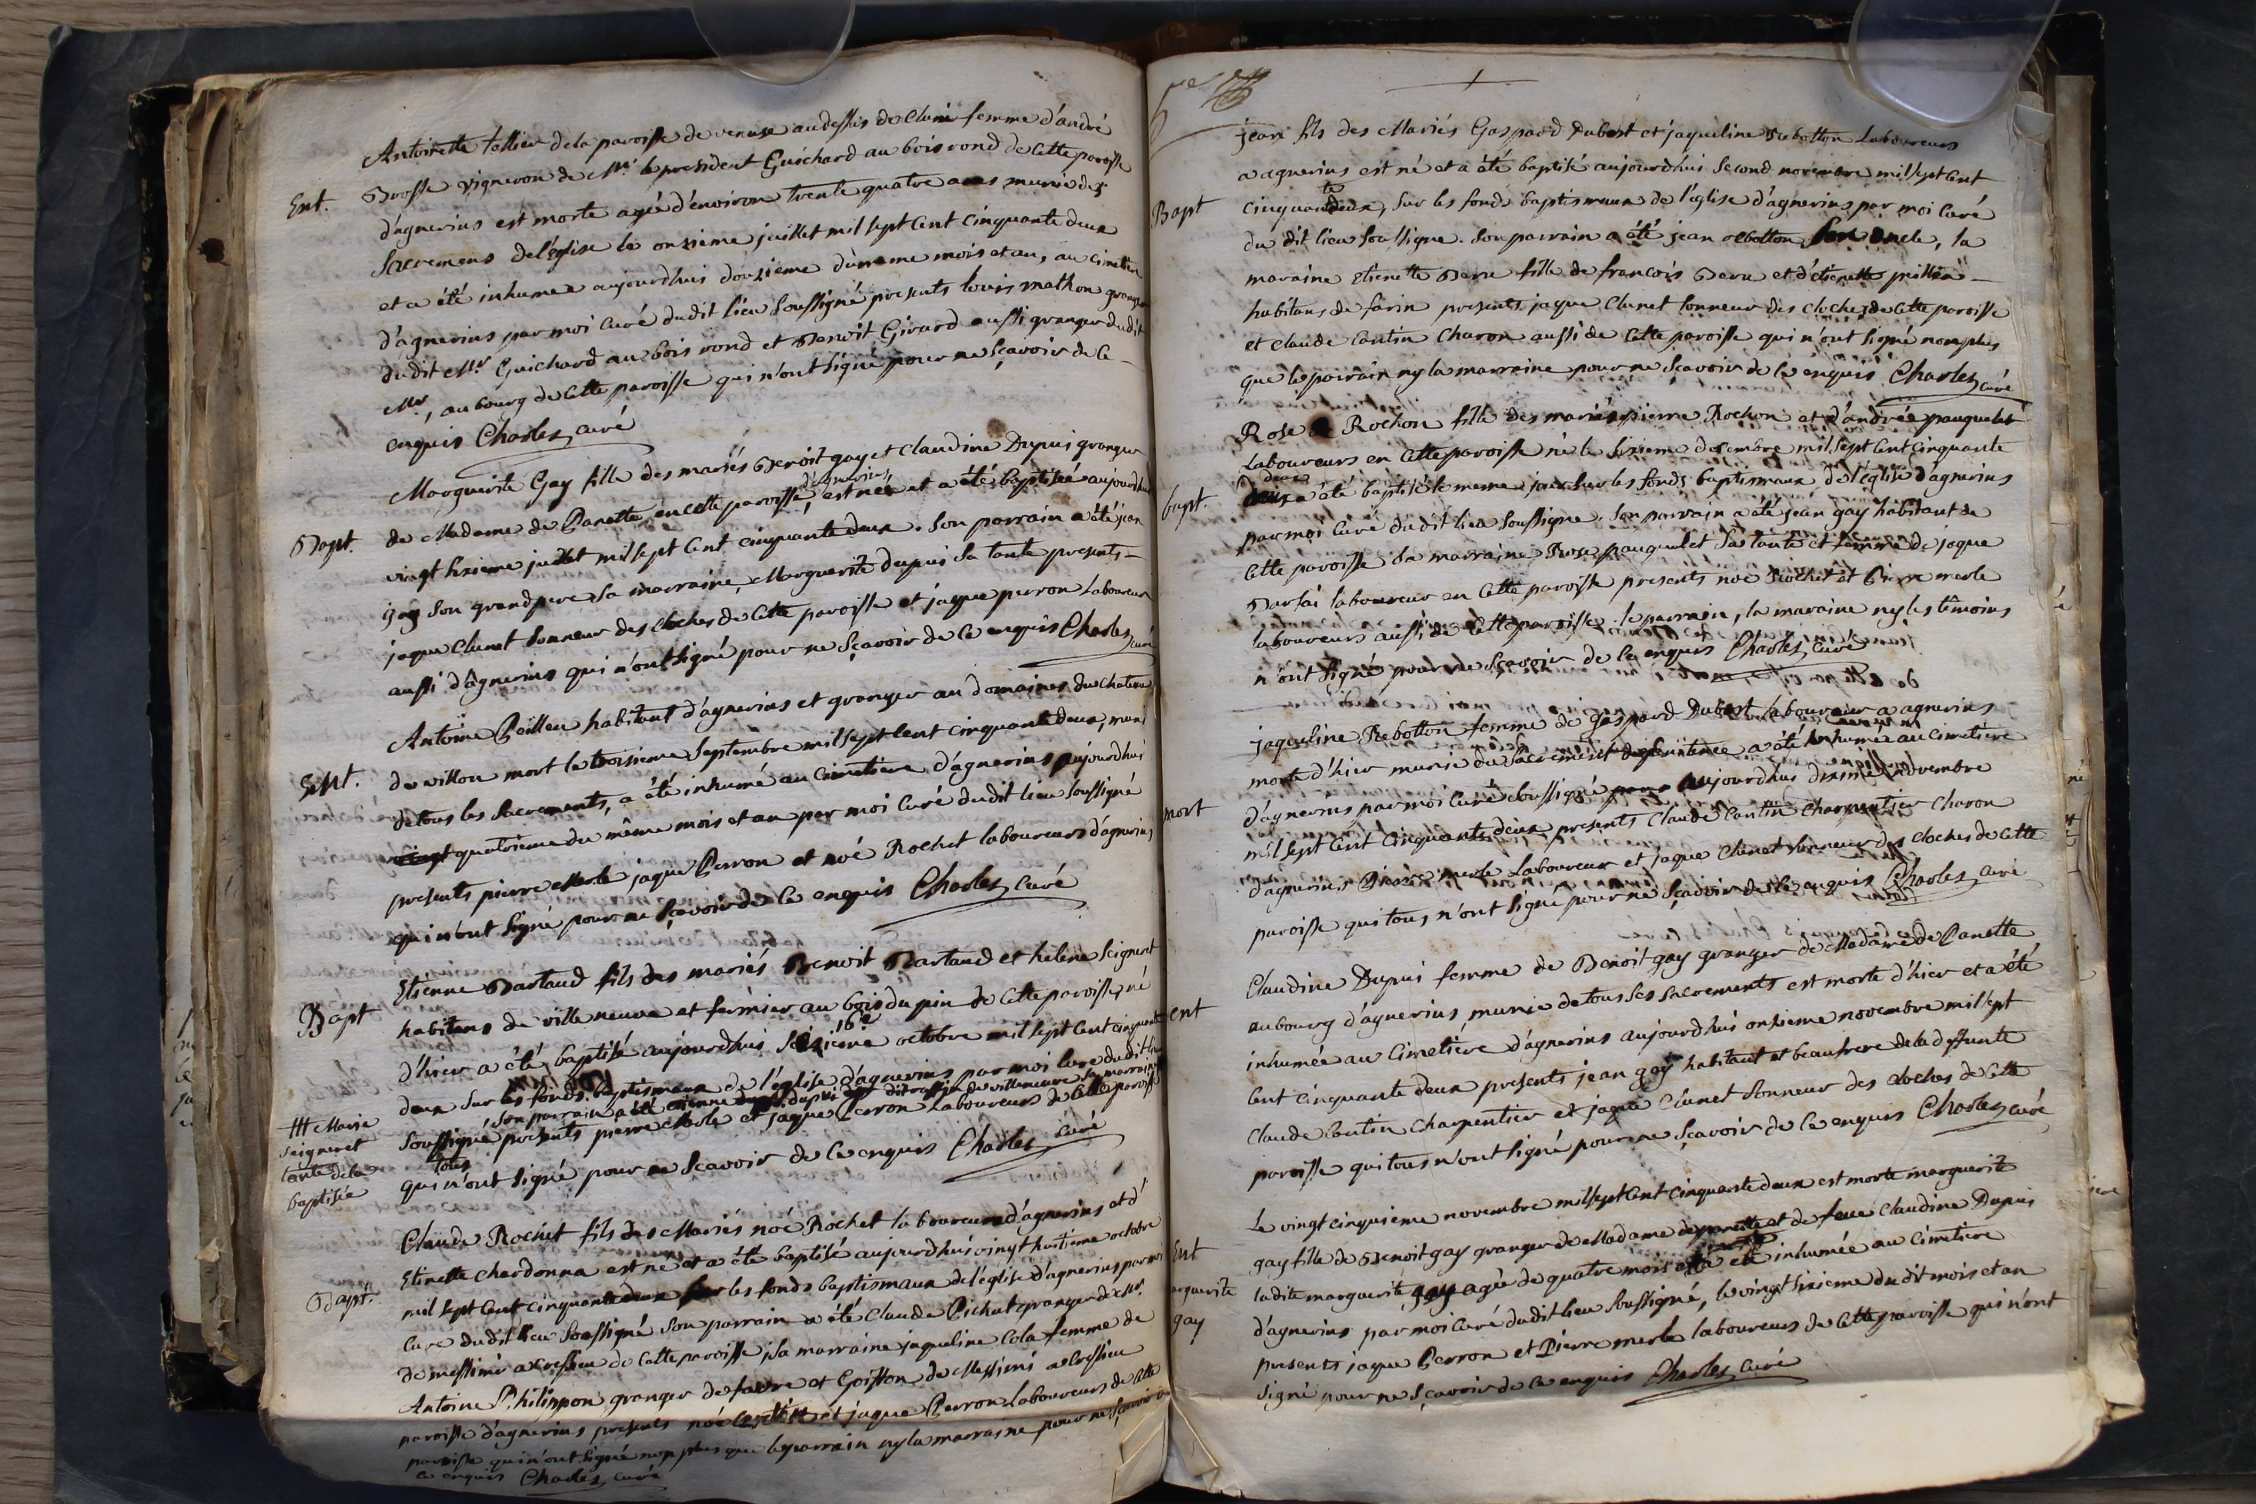 Antoinette tollier de la paroisse de venuse au dessus de Cluni femme d'andré
Ent.
Brosse vigneron de Mr. le president Guichard au bois rond de cette paroisse
d'agnerins est morte agée d'environ trente quatre ans munie des
sacremens de l'église le onzieme juillet mil sept cent cinquante deux
et a été inhumée aujourdhui douzieme du meme mois et an, au cimetiere
d'agnerins par moi curé dudit lieu soussigné presents louis mathon granger
dudit Mr. Guichard au bois rond et Benoit Girard aussi granger dudit
Mr, au bourg de cette paroisse qui n'ont signé pour ne sçavoir de ce
enquis Charles curé
Marguerite Gay fille des mariés Benoit gay et Claudine Dupui granger
Bapt.
de Madame de Panette en cette paroisse d'agnerins, est née et a été baptisée aujourdhui
vingt sixieme juillet mil sept cent cinquante deux. son parrain a été jean
gay son grandpere sa marraine Marguerite dupui sa tante presents
jaque Clunet sonneur des cloches de cette paroisse et jaque perron laboureur
aussi d'agnerins qui n'ont signé pour ne sçavoir de ce enquis Charles curé
Antoine Beilleu habitant d'agnerins et granger au domaines du chateau
Ent.
de willon mort le troisieme septembre mil sept cent cinquante deux, muni
de tous les sacrements, a été inhumé au cimetiere d'agnerins aujourdhui
vingt quatrieme du même mois et an par moi curé dudit lieu soussigné
presents pierre Merle jaque Perron et noé Rochet laboureurs d'agnerins
qui n'ont signé pour ne sçavoir de ce enquis Charles curé
Etienne Bartaud fils des mariés Benoit Bartaud et helene Seigneret
Bapt
habitans de ville neuve et fermier au bois du pin de cette paroisse, né
d'hier a été baptisé aujourdhui seizieme 16e octobre mil sept cent cinquante
deux sur les fonds baptismaux de l'église d'agnerins par moi curé dudit lieu
son parrain a été etienne dupui de villeneuve sa marraine
soussigné presents pierre Merle et jaques Perron laboureurs de cette paroisse
tous
qui n'ont signé pour ne sçavoir de ce enquis Charles curé
ttt Marie
seigneret
tante de la
baptisée
Claude Rochet fils des Mariés noé Rochet laboureur d'agnerins et d'
Etiennette chardonna est né et a été baptisé aujourdhui vingt huitieme octobre
Bapt.
mil sept cent cinquante deux sur les fonds baptismaux de l'église d'agnerins par moi
curé dudit lieu soussigné son parrain a été Claude Pichat granger de Mr.
de messimi a cressieu de cette paroisse, sa marraine jaqueline Cola femme de
Antoine Philippon granger de faure et Goiffon de Messimi a cressieu
paroisse d'agnerins presents noé et jaque Perron laboureurs de cette
paroisse qui n'ont signé non plus que le parrain ny la marraine pour ne sçavoir de
ce enquis Charles curé
jean fils des Mariés Gaspard Dubost et jaqueline Rebotton laboureurs
a agnerins est né et a été baptisé aujourdhui second novembre mil sept cent
Bapt
cinquante deux, sur les fonds baptismaux de l'église d'agnerins par moi curé
du dit lieu soussigné. son parrain a été jean rebotton son oncle, la
maraine etienette Deru fille de francois Deru et d'etienette millia
habitans de farin presents jaque Clunet sonneur des cloches de cette paroisse
et claude Contin Charon aussi de cette paroisse qui n'ont signé nomplus
que le parrain ny la marraine pour ne sçavoir de ce enquis Charles curé
Rose Rochon fille des mariés pierre Rochon et d'andrée pauquelet
laboureurs en cette paroisse né le sixieme decembre mil sept cent cinquante
bapt.
deux a été baptisé le meme jour sur les fonds baptismaux de l'église d'agnerins
par moi curé dudit lieu soussigné. son parrain a été jean gay habitant de
cette paroisse sa marraine Rose pauquelet sa tante et femme de jaque
Darfai laboureur en cette paroisse presents noé Rochet et Pierre merle
laboureurs aussi de cette paroisse. le parrain, la maraine ny les témoins
n'ont signé pour ne sçavoir de ce enquis Charles curé
jaqueline Rebotton femme de Gaspard Dubost laboureur a agnerins
morte d'hier munie du sacrement de penitence a été inhumée au cimetiere
mort
d'agnerins par moi curé soussigné aujourdhui dixieme novembre
mil sept cent cinquante deux presents Claude Contin Charpentier Charon
d'agnerins Pierre merle laboureur et jaque Clunet sonneur des cloches de cette
paroisse qui tous n'ont signé pour ne sçavoir de ce enquis Charles curé
Claudine Dupui femme de Benoit gay granger de Madame de Panette
ent
au bourg d'agnerins munie de tous ses sacrements est morte d'hier et a été
inhumée au cimetière d'agnerins aujourdhui onzieme novembre mil sept
cent cinquante deux presents jean gay habitant et beaufrere de la deffunte
Claude Contin charpentier et jaque Clunet sonneur des cloches de cette
paroisse qui tous n'ont signé pour ne sçavoir de ce enquis Charles curé
Le vingt cinquieme novembre mil sept cent cinquante deux est morte marguerite
Ent
gay fille de Benoit gay granger de Madame de panette et de feue Claudine Dupui
marguerite
ladite marguerite gay agée de quatre mois a été inhumée au cimetiere
gay
d'agnerins par moi curé dudit lieu soussigné, le vingt sixieme du dit mois et an
presents jaque Perron et Pierre merle laboureurs de cette paroisse qui n'ont
signé pour ne sçavoir de ce enquis Charles curé